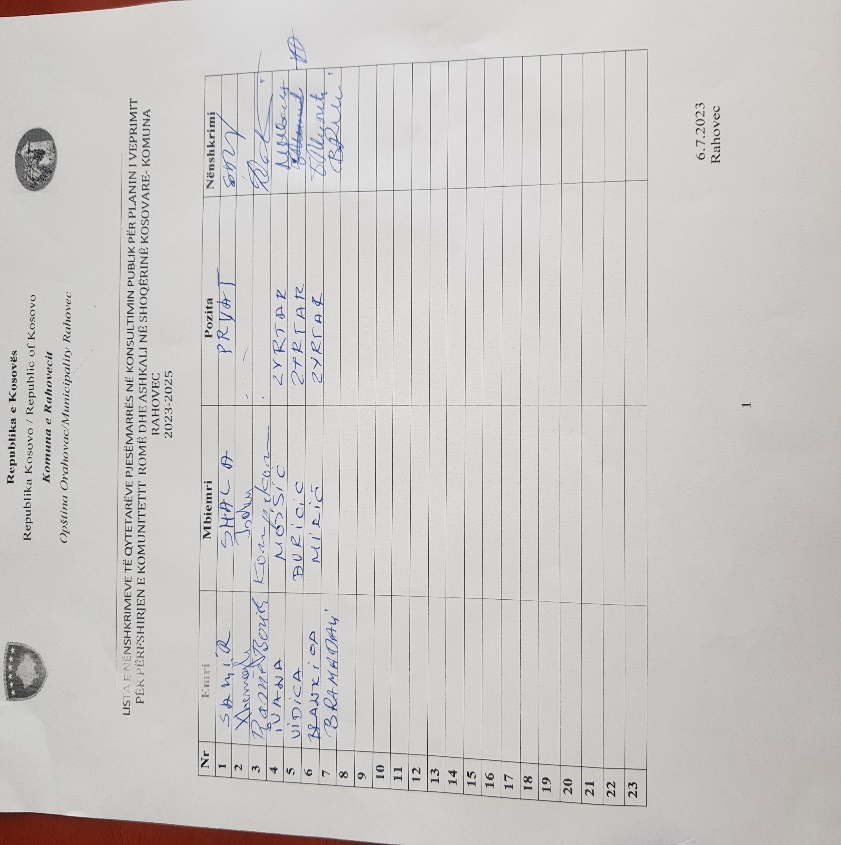 Republika e Kosovës
Republika Kosovo / Republic of Kosovo
Komuna e Rahovecit
Opština Orahovac/Municipality Rahovec
LISTA E NËNSHKRIMEVE TË QYTETARËVE PJESËMARRËS NË KONSULTIMIN PUBLIK PËR PLANIN I VEPRIMIT
PËR PËRFSHIRJEN E KOMUNITETIT ROMË DHE ASHKALI NË SHOQËRINË KOSOVARE- KOMUNA
RAHOVEC
2023-2025
Nr Emri Mbiemri Pozita Nënshkrimi
1 SAMIR SHALA PRIVAT
2
3
4 IVANA ZYRTAR
5 VIDICA BURICIC ZYRTAR
6 MIRIC ZYRTAR
7
8
9
10
11
12
13
14
15
16
17
18
19
20
21
22
23
6.7.2023
Rahovec
1